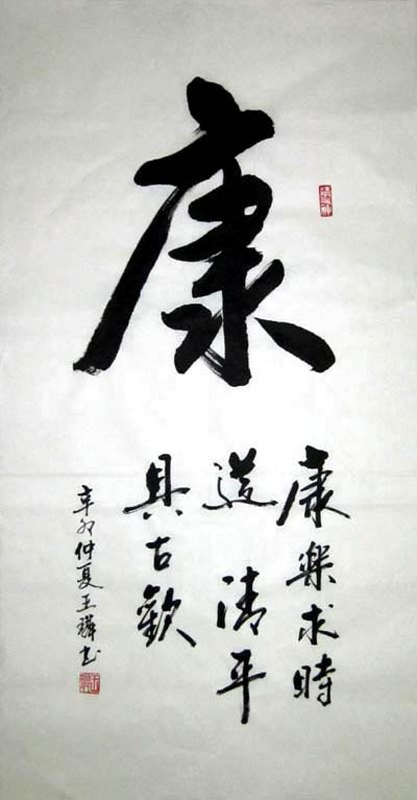 康
康樂求時
道清平
具古歡
辛卯仲夏王璘书